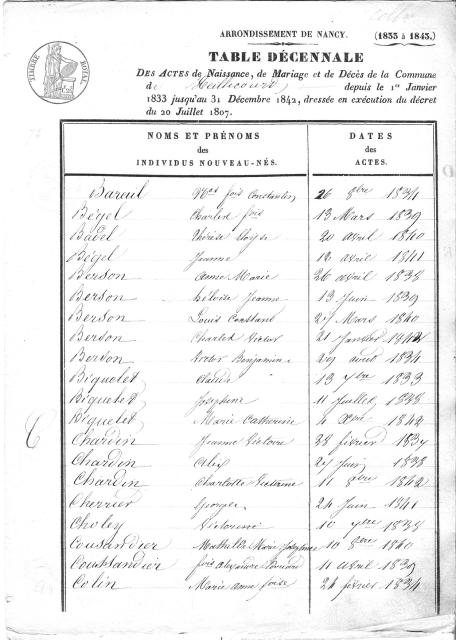 ARRONDISSEMENT DE NANCY. (1833 à 1843.)
TIMBRE ROYAL
TABLE DÉCENNALE
DES ACTES de Naissance, de Mariage et de Décès de la Commune
d depuis le 1er Janvier
1833 jusqu'au 31 Décembre 1842, dressée en exécution du décret
du 20 Juillet 1807.
NOMS ET PRÉNOMS
des
INDIVIDUS NOUVEAU-NÉS.
DATES
des
ACTES.
Bareuil Nas fois Constantin 26 8bre 1834
Bégel Charles fois 13 Mars 1839
Badel Thérèse 20 avril 1840
Bégel Jeanne 12 avril 1841
Berson anne Marie 26 avril 1838
Berson héloise Jeanne 13 Juin 1839
Berson Louis Constant 27 Mars 1840
Berson Charles Victor 21 Janvier 1842
Berson Victor Benjamin 29 août 1834
Biquelet Claude 13 7bre 1833
Biquelet Joséphine 11 Juillet 1838
Biquelet Marie Catherine 4 Xbre 1842
C
Chardin Jeanne Victoire 28 février 1837
Chardin Alix 27 Juin 1838
Chardin Charlotte Victorine 11 8bre 1842
Cherrier Georges 24 Juin 1841
Choley Victorine 10 7bre 1838
Cousandier Mathilde Marie Josephine 10 8bre 1840
Coussandier fois alexandre 11 avril 1839
Colin Marie anne foise 24 février 1834